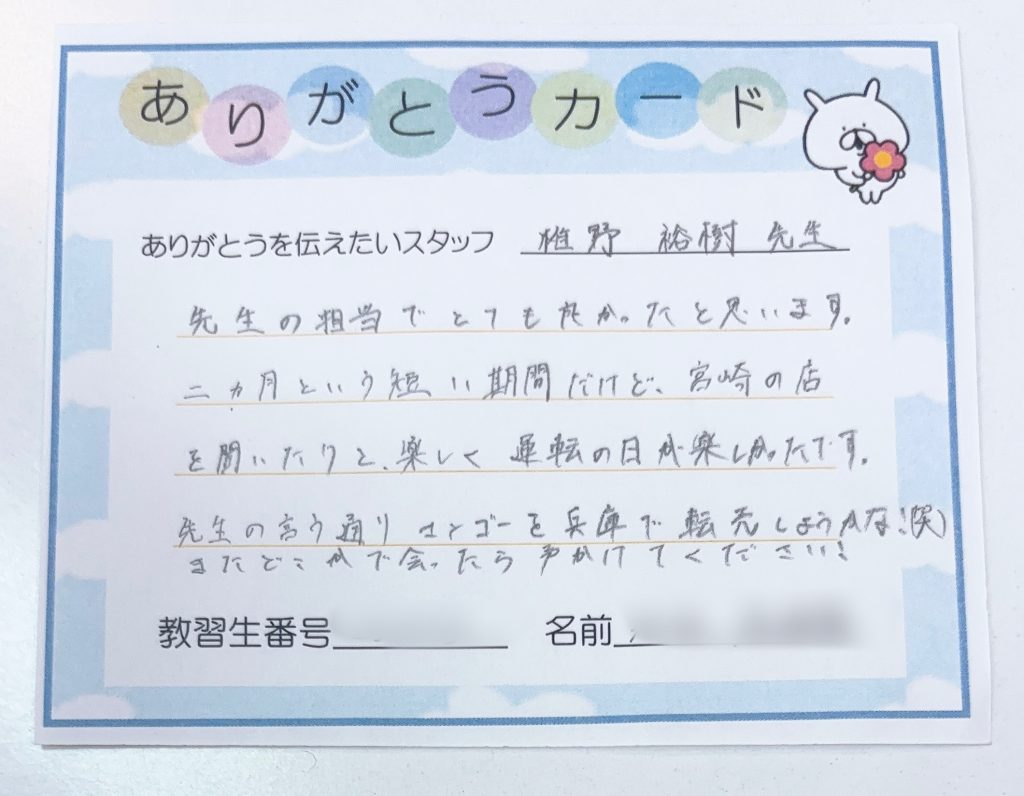 ありがとうカード
ありがとうを伝えたいスタッフ 椎野 裕樹 先生
先生の担当でとても良かったと思います。
二ヵ月という短い期間だけど、宮崎の店
を聞いたりと、楽しく運転の日が楽しかったです。
先生の言う通りマンゴーを兵庫で転売しようかな!(笑)
またどこかで会ったら声かけてください!
教習生番号
名前